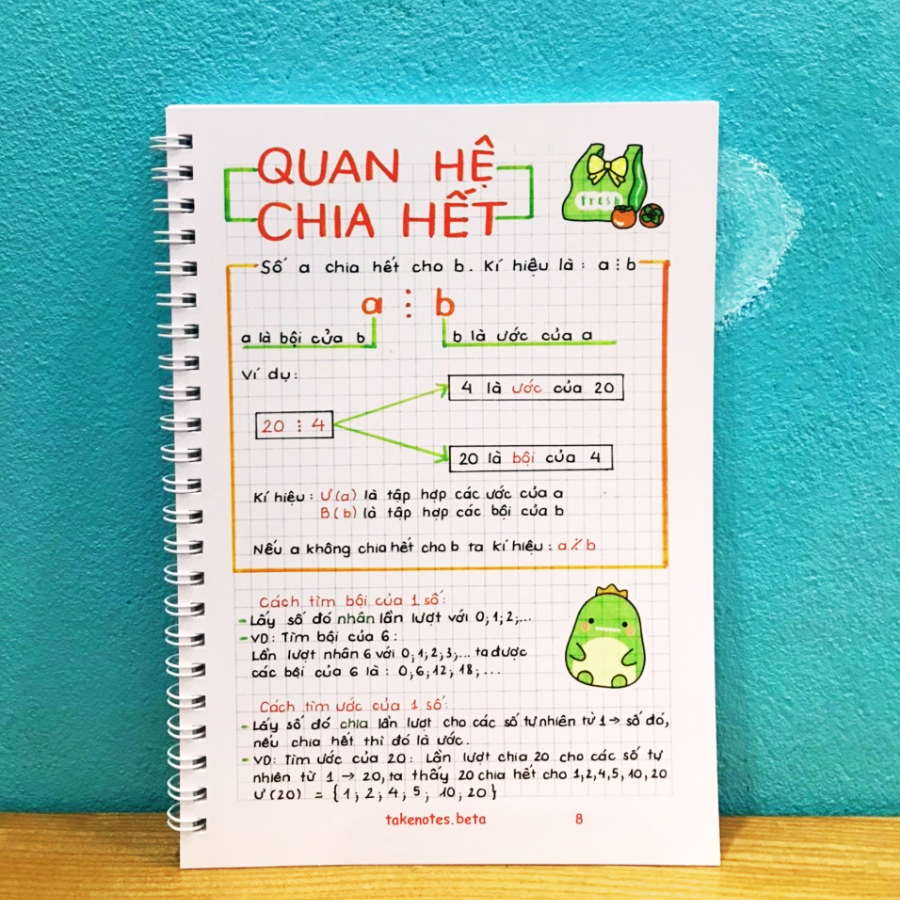 QUAN HỆ
CHIA HẾT
fresh
Số a chia hết cho b. Kí hiệu là : a⋮b
a ⋮ b
a là bội của b
b là ước của a
Ví dụ:
4 là ước của 20
20 ⋮ 4
20 là bội của 4
Kí hiệu : Ư(a) là tập hợp các ước của a
B(b) là tập hợp các bội của b
Nếu a không chia hết cho b ta kí hiệu : a⋮̸b
Cách tìm bội của 1 số:
- Lấy số đó nhân lần lượt với 0;1;2;...
- VD: Tìm bội của 6:
Lần lượt nhân 6 với 0;1;2;3;... ta được
các bội của 6 là : 0;6;12;18;...
Cách tìm ước của 1 số:
- Lấy số đó chia lần lượt cho các số tự nhiên từ 1 → số đó,
nếu chia hết thì đó là ước.
- VD: Tìm ước của 20: Lần lượt chia 20 cho các số tự
nhiên từ 1 → 20, ta thấy 20 chia hết cho 1,2,4,5,10,20
Ư(20) = {1; 2; 4; 5; 10; 20}
takenotes.beta 8